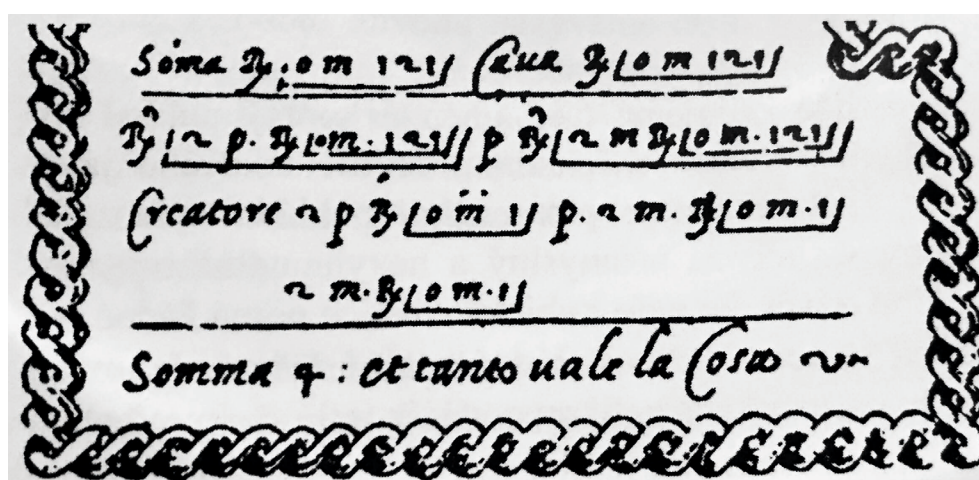 Soma ℞⌊0 m 121⌋ Caua ℞⌊0 m 121⌋
℞³⌊2 p. ℞⌊0m.121⌋⌋ p ℞³⌊2 m ℞⌊0 m.121⌋⌋
Creatore 2 p ℞⌊0 m̈ 1⌋ p. 2 m. ℞⌊0 m.1⌋
2 m.℞⌊0 m.1⌋
Somma 4 : et tanto uale la Cosa